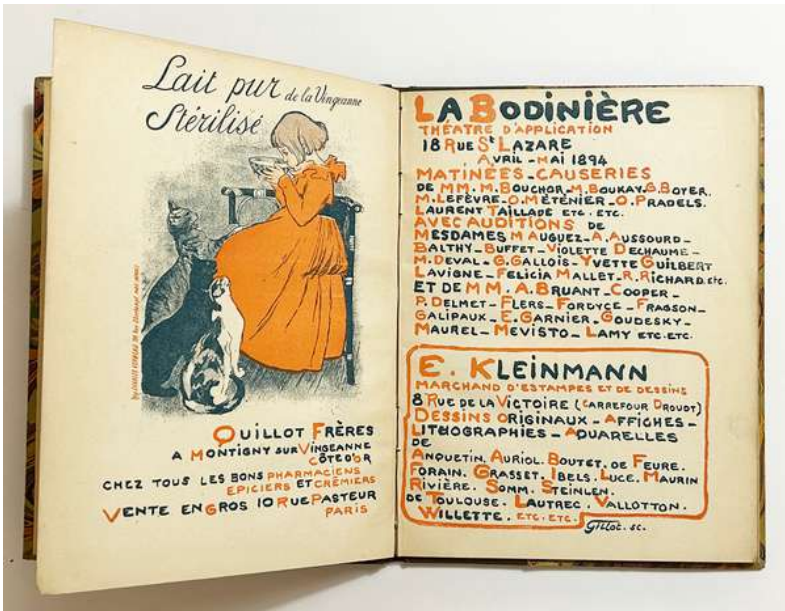 Lait pur de la Vingeanne
Stérilisé
QUILLOT FRÈRES
A MONTIGNY SUR VINGEANNE
CÔTE D'OR
CHEZ TOUS LES BONS PHARMACIENS
EPICIERS ET CRÉMIERS
VENTE EN GROS 10 RUE PASTEUR
PARIS
LA BODINIÈRE
THÉATRE D'APPLICATION
18 RUE St LAZARE
AVRIL - MAI 1894
MATINÉES - CAUSERIES
DE MM. M. BOUCHOR - M. BOUKAY - G. BOYER.
M. LEFÈVRE - O. MÉTÉNIER - O. PRADELS.
LAURENT TAILLADE ETC. ETC.
AVEC AUDITIONS DE
MESDAMES M AUGUEZ - A. AUSSOURD -
BALTHY - BUFFET - VIOLETTE DECHAUME -
M. DEVAL - G. GALLOIS - YVETTE GUILBERT
LAVIGNE - FELICIA MALLET - R. RICHARD etc.
ET DE MM. A. BRUANT - COOPER -
P. DELMET - FLERS - FORDYCE - FRAGSON -
GALIPAUX - E. GARNIER - GOUDESKY -
MAUREL - MÉVISTO - LAMY ETC. ETC.
E. KLEINMANN
MARCHAND D'ESTAMPES ET DE DESSINS
8 RUE DE LA VICTOIRE (CARREFOUR DROUOT)
DESSINS ORIGINAUX - AFFICHES -
LITHOGRAPHIES - AQUARELLES
DE
ANQUETIN. AURIOL. BOUTET. DE FEURE.
FORAIN. GRASSET. IBELS. LUCE. MAURIN
RIVIÈRE. SOMM. STEINLEN.
DE TOULOUSE. LAUTREC. VALLOTTON.
WILLETTE. ETC. ETC.
Gillot. sc.